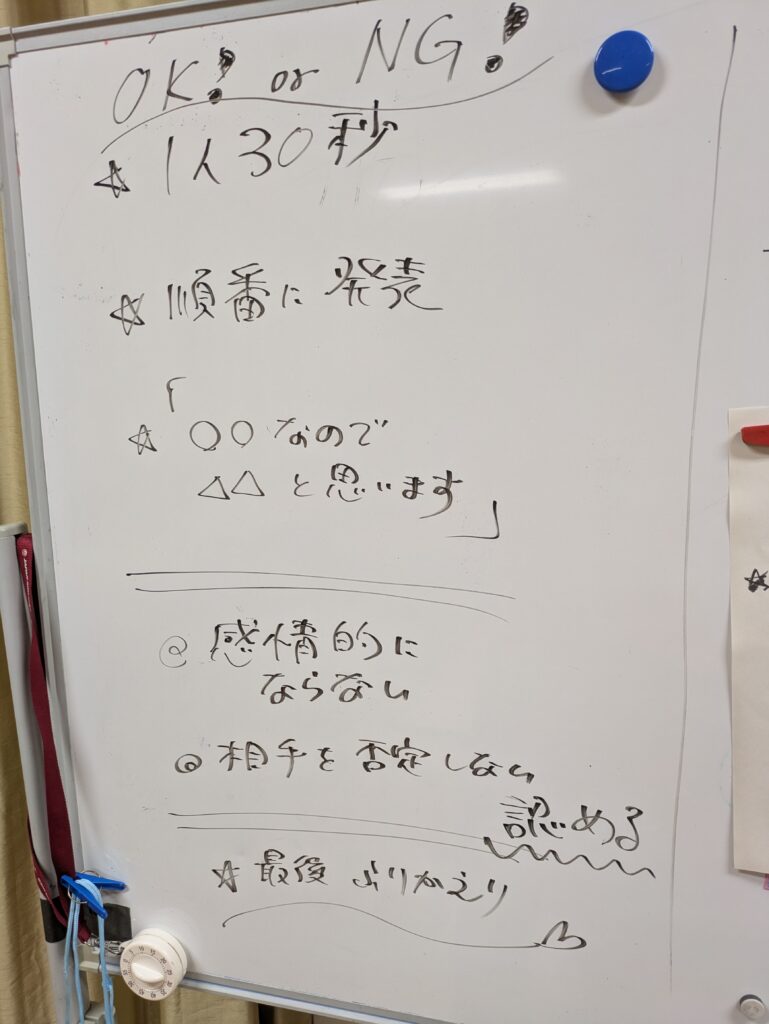 OK! or NG!
☆ 1人30秒
☆ 順番に 発売
☆「○○なので
△△と思います」
◎ 感情的に
ならない
◎ 相手を否定しない
認める
☆ 最後 ふりかえり